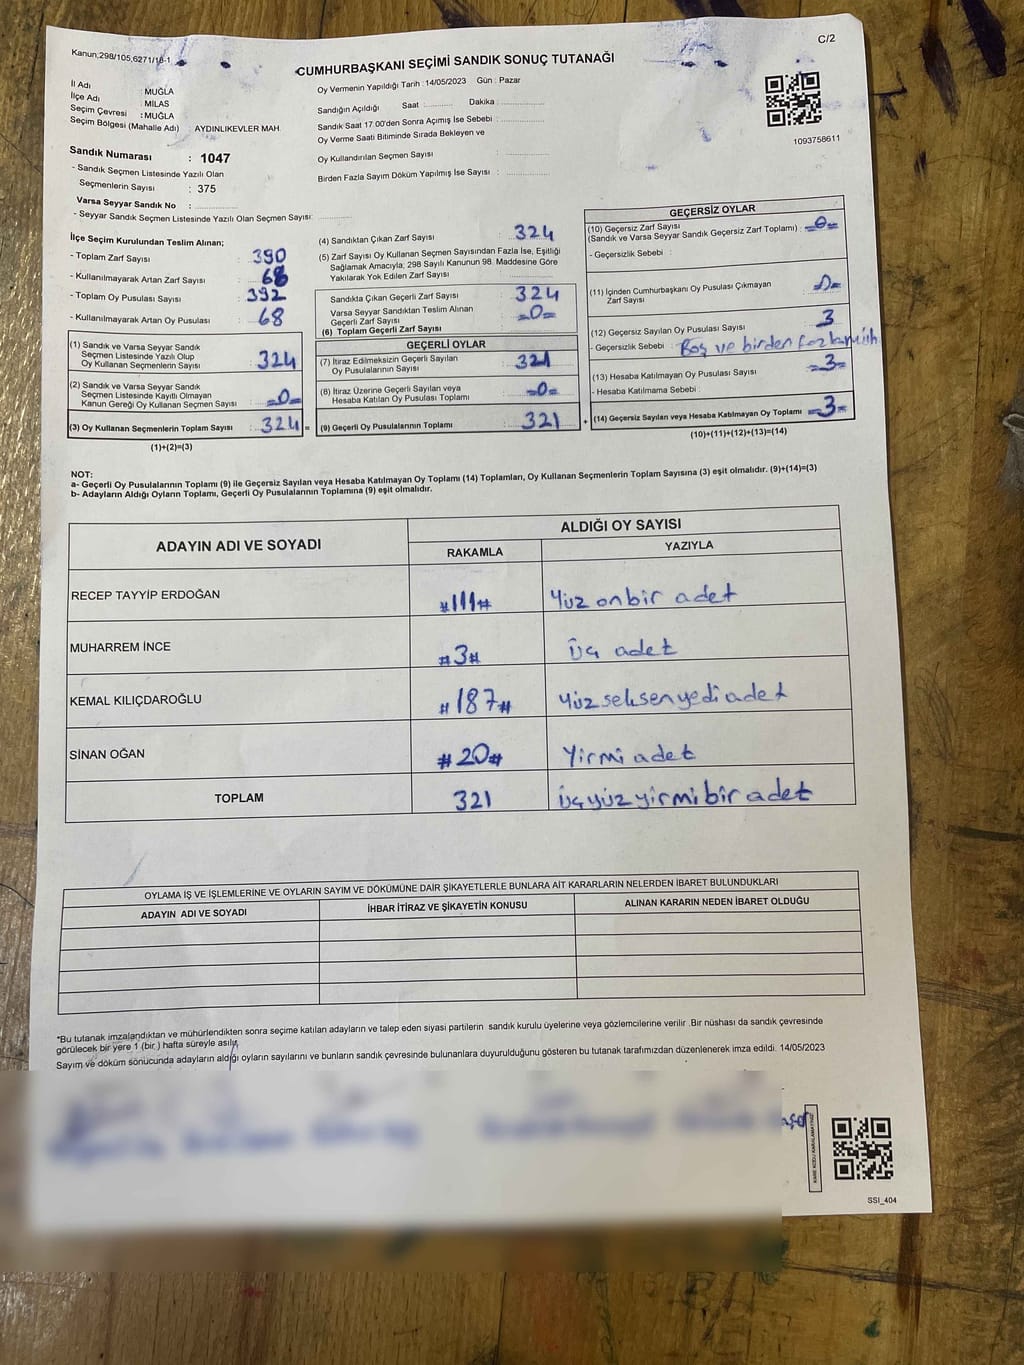 Kanun;298/105,6271/16-1
C/2
CUMHURBAŞKANI SEÇİMİ SANDIK SONUÇ TUTANAĞI
İl Adı : MUĞLA
İlçe Adı : MİLAS
Seçim Çevresi : MUĞLA
Seçim Bölgesi (Mahalle Adı) : AYDINLIKEVLER MAH
Sandık Numarası : 1047
- Sandık Seçmen Listesinde Yazılı Olan
Seçmenlerin Sayısı : 375
Varsa Seyyar Sandık No :
- Seyyar Sandık Seçmen Listesinde Yazılı Olan Seçmen Sayısı:
Oy Vermenin Yapıldığı Tarih : 14/05/2023 Gün : Pazar
Sandığın Açıldığı Saat Dakika
Sandık Saat 17:00'den Sonra Açımış İse Sebebi :
Oy Verme Saati Bitiminde Sırada Bekleyen ve
Oy Kullandırılan Seçmen Sayısı :
Birden Fazla Sayım Döküm Yapılmış İse Sayısı :
1093758611
İlçe Seçim Kurulundan Teslim Alınan;
- Toplam Zarf Sayısı : 390
- Kullanılmayarak Artan Zarf Sayısı : 68
- Toplam Oy Pusulası Sayısı : 392
- Kullanılmayarak Artan Oy Pusulası : 68
(1) Sandık ve Varsa Seyyar Sandık
Seçmen Listesinde Yazılı Olup
Oy Kullanan Seçmenlerin Sayısı : 324
(2) Sandık ve Varsa Seyyar Sandık
Seçmen Listesinde Kayıtlı Olmayan
Kanun Gereği Oy Kullanan Seçmen Sayısı : =0=
(3) Oy Kullanan Seçmenlerin Toplam Sayısı : 324 =
(1)+(2)=(3)
(4) Sandıktan Çıkan Zarf Sayısı : 324
(5) Zarf Sayısı Oy Kullanan Seçmen Sayısından Fazla İse, Eşitliği
Sağlamak Amacıyla; 298 Sayılı Kanunun 98. Maddesine Göre
Yakılarak Yok Edilen Zarf Sayısı :
Sandıkta Çıkan Geçerli Zarf Sayısı : 324
Varsa Seyyar Sandıktan Teslim Alınan
Geçerli Zarf Sayısı : =0=
(6) Toplam Geçerli Zarf Sayısı :
GEÇERLİ OYLAR
(7) İtiraz Edilmeksizin Geçerli Sayılan
Oy Pusulalarının Sayısı : 321
(8) İtiraz Üzerine Geçerli Sayılan veya
Hesaba Katılan Oy Pusulası Toplamı : =0=
(9) Geçerli Oy Pusulalarının Toplamı : 321 +
GEÇERSİZ OYLAR
(10) Geçersiz Zarf Sayısı
(Sandık ve Varsa Seyyar Sandık Geçersiz Zarf Toplamı) : =0=
- Geçersizlik Sebebi :
(11) İçinden Cumhurbaşkanı Oy Pusulası Çıkmayan
Zarf Sayısı : =0=
(12) Geçersiz Sayılan Oy Pusulası Sayısı : 3
- Geçersizlik Sebebi : Boş ve birden fazla mühür
(13) Hesaba Katılmayan Oy Pusulası Sayısı : =3=
- Hesaba Katılmama Sebebi :
(14) Geçersiz Sayılan veya Hesaba Katılmayan Oy Toplamı : =3=
(10)+(11)+(12)+(13)=(14)
NOT:
a- Geçerli Oy Pusulalarının Toplamı (9) ile Geçersiz Sayılan veya Hesaba Katılmayan Oy Toplamı (14) Toplamları, Oy Kullanan Seçmenlerin Toplam Sayısına (3) eşit olmalıdır. (9)+(14)=(3)
b- Adayların Aldığı Oyların Toplamı, Geçerli Oy Pusulalarının Toplamına (9) eşit olmalıdır.
ADAYIN ADI VE SOYADI ALDIĞI OY SAYISI
RAKAMLA YAZIYLA
RECEP TAYYİP ERDOĞAN #111# Yüz onbir adet
MUHARREM İNCE #3# üç adet
KEMAL KILIÇDAROĞLU #187# yüzseksenyedi adet
SİNAN OĞAN #20# Yirmi adet
TOPLAM 321 üçyüzyirmibir adet
OYLAMA İŞ VE İŞLEMLERİNE VE OYLARIN SAYIM VE DÖKÜMÜNE DAİR ŞİKAYETLERLE BUNLARA AİT KARARLARIN NELERDEN İBARET BULUNDUKLARI
ADAYIN ADI VE SOYADI İHBAR İTİRAZ VE ŞİKAYETİN KONUSU ALINAN KARARIN NEDEN İBARET OLDUĞU
*Bu tutanak imzalandıktan ve mühürlendikten sonra seçime katılan adayların ve talep eden siyasi partilerin sandık kurulu üyelerine veya gözlemcilerine verilir .Bir nüshası da sandık çevresinde
görülecek bir yere 1 (bir ) hafta süreyle asılır.
Sayım ve döküm sonucunda adayların aldığı oyların sayılarını ve bunların sandık çevresinde bulunanlara duyurulduğunu gösteren bu tutanak tarafımızdan düzenlenerek imza edildi. 14/05/2023
SSI_404